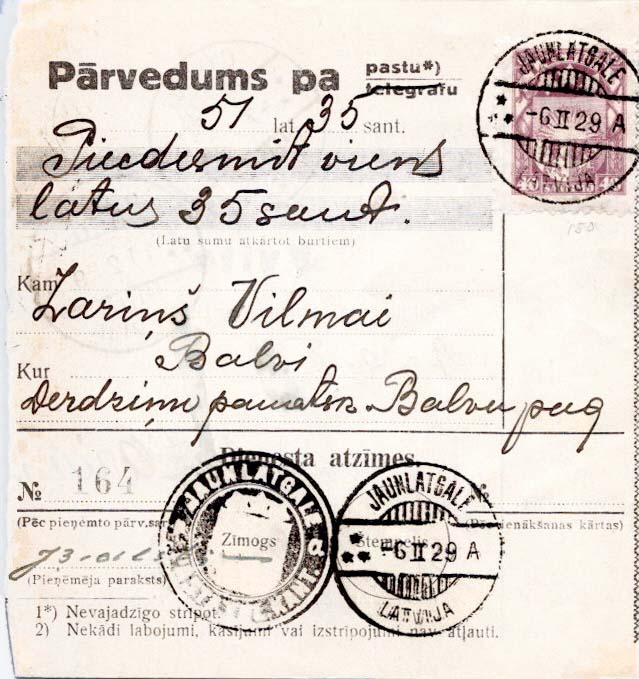 Pārvedums pa pastu*)
telegrafu
JAUNLATGALE
-6 II 29 A
LATVIJA
40 40
51 lat. 35 sant.
Piecdesmit viens
latus 35 sant.
(Latu sumu atkārtot burtiem)
150
Kam Zariņš Vilmai
Balvi
Kur
Derdziņu pamatsk Balvu pag
Dienesta atzīmes.
№ 164
(Pēc pieņemto pārv. sar
(Pēc pienākšanas kārtas)
JAUNLATGAL
Zīmogs
a
JAUNLATGALE
Stempelis
-6 II 29 A
LATVIJA
(Pieņēmēja paraksts)
1*) Nevajadzīgo strīpot.
2) Nekādi labojumi, kasījumi vai izstrīpojumi nav atļauti.